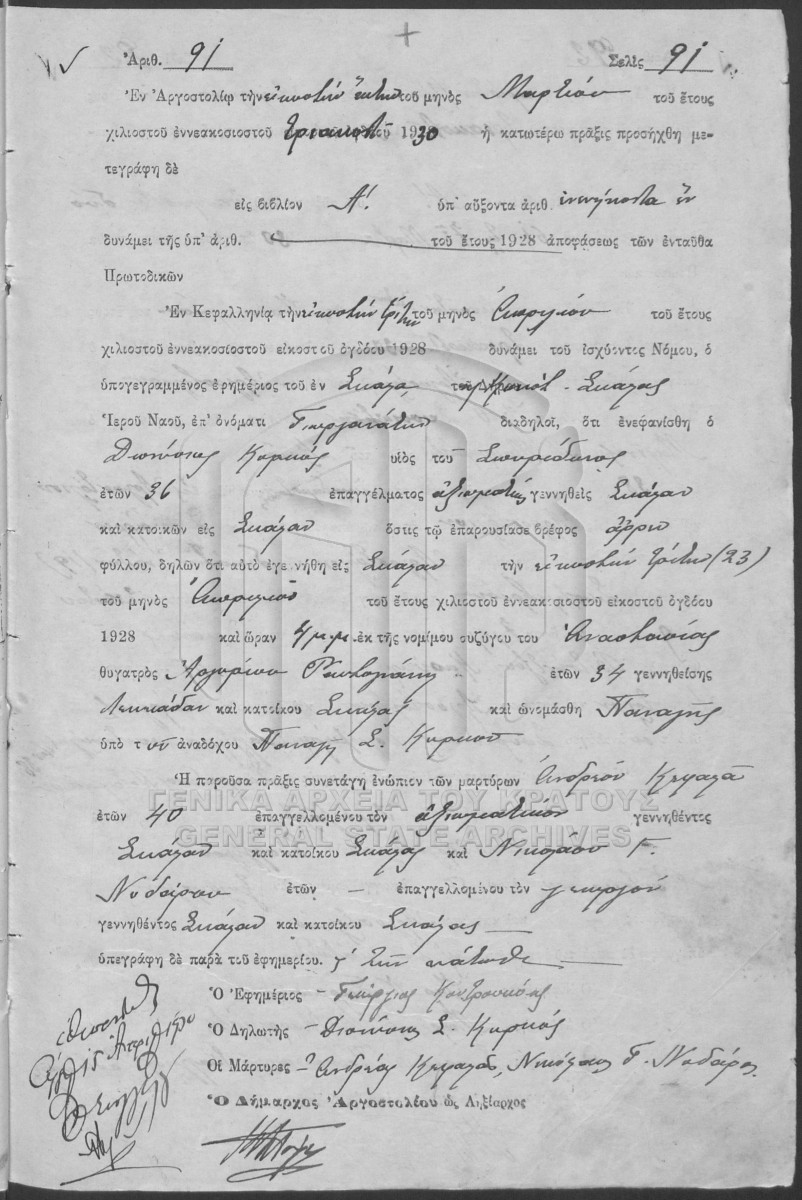 Ἀριθ. 91 Σελὶς 91
Ἐν Ἀργοστολίῳ τὴν εἰκοστὴν ἕκτην τοῦ μηνὸς Μαρτίου τοῦ ἔτους
χιλιοστοῦ ἐννεακοσιοστοῦ τριακοστοῦ 1930 ἡ κατωτέρω πρᾶξις προσήχθη με-
τεγράφη δὲ
εἰς βιβλίον Α! ὑπ' αὔξοντα ἀριθ. ἐνενήκοντα ἓν
δυνάμει τῆς ὑπ' ἀριθ. τοῦ ἔτους 1928 ἀποφάσεως τῶν ἐνταῦθα
Πρωτοδικῶν
Ἐν Κεφαλληνίᾳ τὴν εἰκοστὴν τρίτην τοῦ μηνὸς Ἀπριλίου τοῦ ἔτους
χιλιοστοῦ ἐννεακοσιοστοῦ εἰκοστοῦ ὀγδόου 1928 δυνάμει τοῦ ἰσχύοντος Νόμου, ὁ
ὑπογεγραμμένος ἐφημέριος τοῦ ἐν Σκάλᾳ τῆς Κοινότ. Σκάλας
Ἱεροῦ Ναοῦ, ἐπ' ὀνόματι διαδηλοῖ, ὅτι ἐνεφανίσθη ὁ
Διονύσιος Κυρκός υἱὸς τοῦ Σπυρίδωνος
ἐτῶν 36 ἐπαγγέλματος γεννηθεὶς Σκάλαν
καὶ κατοικῶν εἰς Σκάλαν ὅστις τῷ ἐπαρουσίασε βρέφος ἄρρεν
φύλλου, δηλῶν ὅτι αὐτὸ ἐγεννήθη εἰς Σκάλαν τὴν εἰκοστὴν τρίτην (23)
τοῦ μηνὸς Ἀπριλίου τοῦ ἔτους χιλιοστοῦ ἐννεακοσιοστοῦ εἰκοστοῦ ὀγδόου
1928 καὶ ὥραν 4 μ.μ. ἐκ τῆς νομίμου συζύγου του Ἀναστασίας
θυγατρὸς Ἀργυρίου ἐτῶν 34 γεννηθείσης
Λευκάδαν καὶ κατοίκου Σκάλας καὶ ὠνομάσθη Παναγῆς
ὑπὸ τοῦ ἀναδόχου Παναγῆ Σ. Κυρκοῦ
Ἡ παροῦσα πρᾶξις συνετάγη ἐνώπιον τῶν μαρτύρων Ἀνδρέου Κεφαλᾶ
ΓΕΝΙΚΑ ΑΡΧΕΙΑ ΤΟΥ ΚΡΑΤΟΥΣ
ἐτῶν 40 ἐπαγγελλομένου τὸν ἀξιωματικόν γεννηθέντος
GENERAL STATE ARCHIVES
Σκάλαν καὶ κατοίκου Σκάλας καὶ Νικολάου Γ.
Νοδάρου ἐτῶν — ἐπαγγελλομένου τὸν γεωργόν
γεννηθέντος Σκάλαν καὶ κατοίκου Σκάλας
ὑπεγράφη δὲ παρὰ τοῦ ἐφημερίου.
Ὁ Ἐφημέριος – Γεώργιος
Ὁ Δηλωτὴς – Διονύσιος Σ. Κυρκός
Οἱ Μάρτυρες – Ἀνδρέας Κεφαλᾶς, Νικόλαος Γ. Νοδάρος
Ὁ Δήμαρχος Ἀργοστολίου ὡς Ληξίαρχος